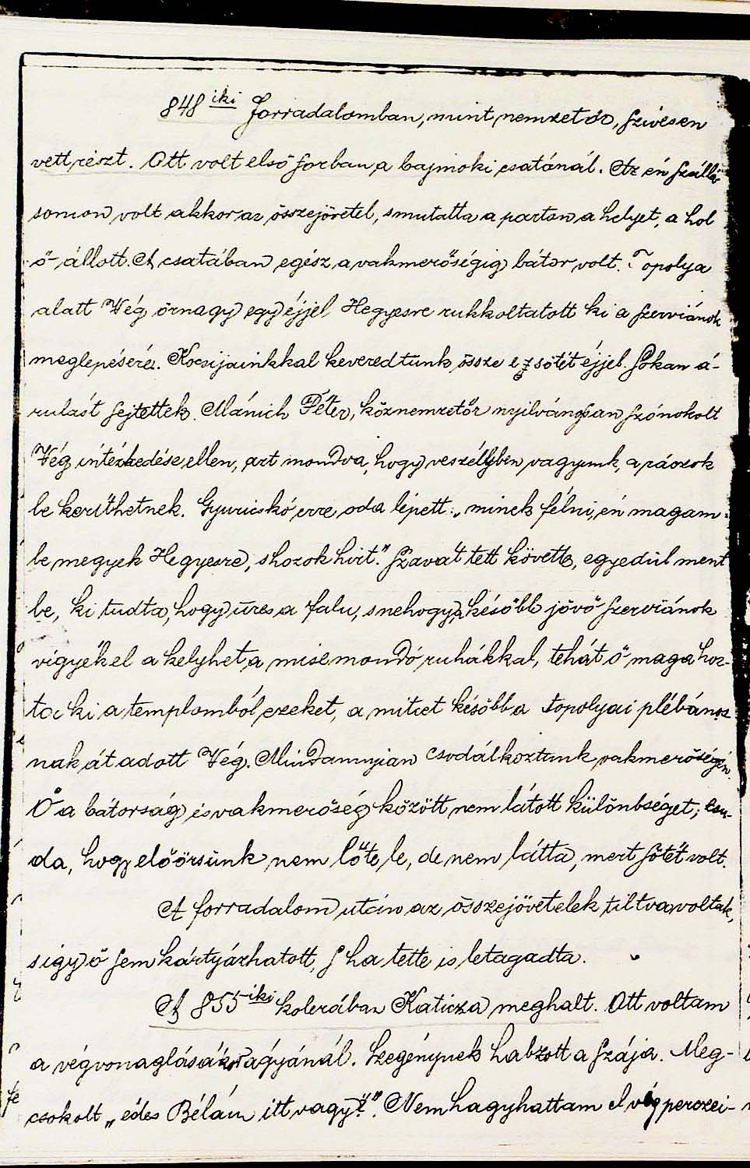 848 iki forradalomban, mint nemzetőr, szívesen
vett részt. Ott volt első sorban a bajmoki csatánál. Az én szállá-
somon volt akkor az összejövetel, s mutatta a parton a helyet, a hol
ő állott. A csatában egész a vakmerőségig bátor volt. Topolya
alatt Vég őrnagy egy éjjel Hegyesre rukkoltatott ki a szerviánok
meglepésére. Kocsijainkkal keveredtünk össze ez sötét éjjel. Sokan á-
rulást sejtettek. Mánich Péter, köznemzetőr nyilvánosan szónokolt
Vég intézkedése ellen, azt mondva, hogy veszélyben vagyunk, a ráczok
be keríthetnek. Gyuricskó erre oda lépett: „minek félni, én magam
be megyek Hegyesre, s hozok hirt." Szavát tett követte, egyedül ment
be, ki tudta, hogy üres a falu, s nehogy a később jövő szerviánok
vigyék el a kelyhet, a misemondó ruhákkal, tehát ő maga hoz-
ta ki a templomból ezeket, a miket később a topolyai plébános-
nak át adott Vég. Mindannyian csodálkoztunk vakmerőségén.
Ő a bátorság és vakmerőség között nem látott különbséget; csu-
da, hogy előőrsünk nem lőtte le, de nem látta, mert sötét volt.
A forradalom után az összejövetelek tiltva voltak,
s így ő sem kártyázhatott, s ha tette is letagadta.
A 855 iki kolerában Katicza meghalt. Ott voltam
a végvonaglásakor ágyánál. Szegénynek habzott a szája. Meg-
csokolt „édes Bélám itt vagy?". Nem hagyhattam el vég perczei-